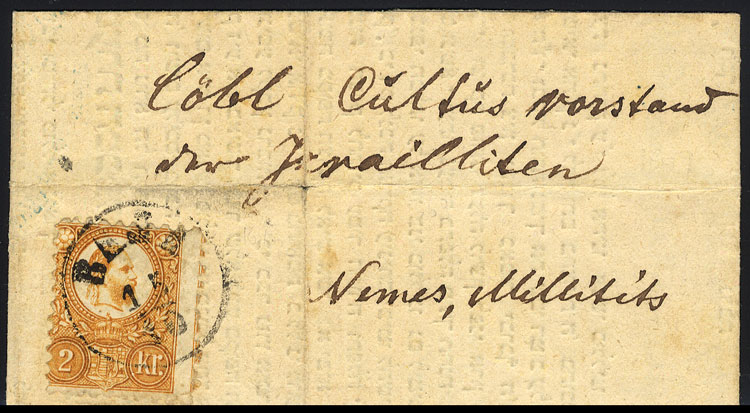 Löbl Cultus vorstand
der Israilliten
Nemes, Millitits
2 kr.